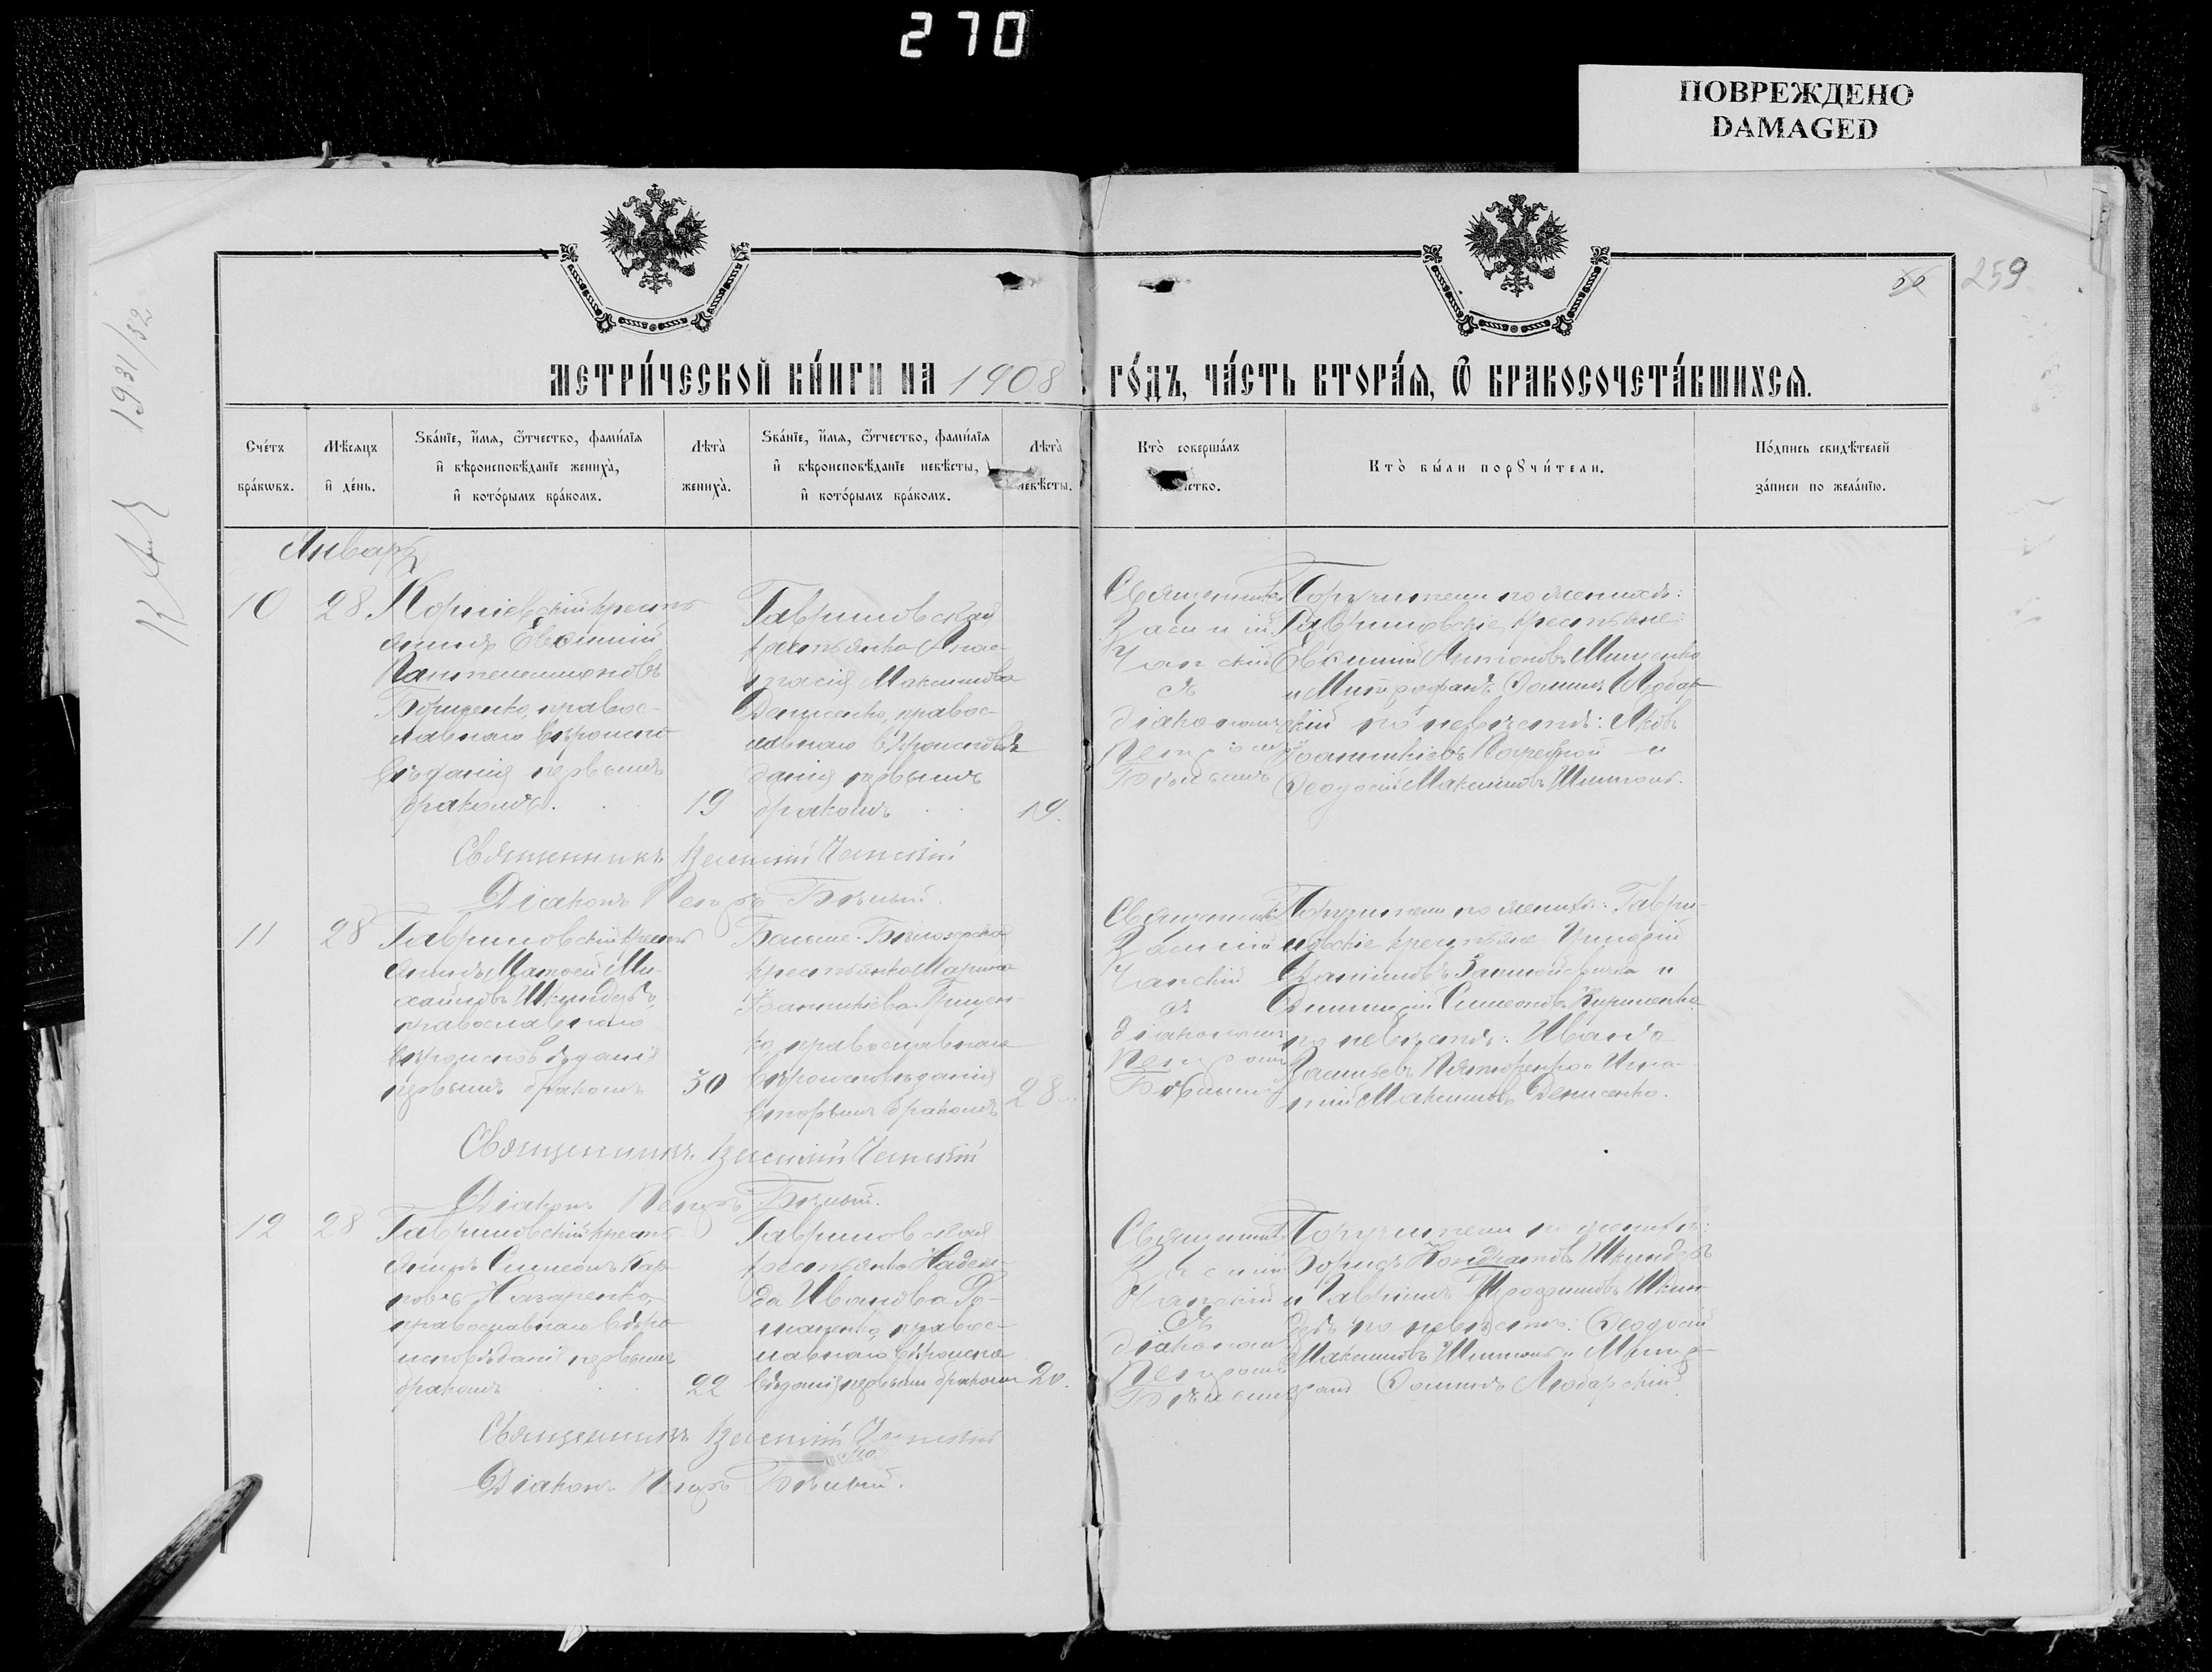 270
ПОВРЕЖДЕНО
DAMAGED
259
1931/32
МЕТРИ́ЧЕСКОЙ КНИ́ГИ НА 1908 ГО́ДЪ, ЧА́СТЬ ВТОРА́Ѧ, Ѿ БРАКОСОЧЕТА́ВШИХСѦ.
Сче́тъ бра́кѡвъ.
Мѣ́сѧцъ и҆ де́нь.
Ѕва́нїе, и҆́мѧ, ѻ҆́тчество, фами́лїѧ
и҆ вѣроисповѣ́данїе жениха̀,
и҆ кото́рымъ бра́комъ.
Лѣта̀ жениха̀.
Ѕва́нїе, и҆́мѧ, ѻ҆́тчество, фами́лїѧ
и҆ вѣроисповѣ́данїе невѣ́сты,
и҆ кото́рымъ бра́комъ.
Лѣта̀ невѣ́сты.
Кто̀ соверша́лъ
Кто̀ бы́ли порꙋчи́тели.
По́дпись свидѣ́телей
за́писи по жела́нїю.
Январь
10
28
Корніевскій крестъ
янинъ Евѳимій
Пантелеимоновъ
Борщенко, правос-
лавнаго вѣроиспо
вѣданія первымъ
бракомъ.
19
Гавриловская
крестьянка Анас-
тасія Максимова
Денисенко, правос-
лавнаго вѣроисповѣ
данія первымъ
бракомъ
19.
Священникъ
Василій
Чапскій
съ
діакономъ
Петромъ
Бѣлымъ
Поручители по женихѣ:
Гавриловскіе крестьяне:
Евѳимій Антоновъ Мищенко
и Митрофанъ Ѳоминъ Любар-
скій по невѣстѣ: Яковъ
Іоанникіевъ Кочерной и
Ѳеодосій Максимовъ Шытовъ.
Священникъ Василій Чапскій
Діаконъ Петръ Бѣлый.
11
28
Гавриловскій крестъ
янинъ Матѳей Ми-
хайловъ Шкындеръ,
православнаго
вѣроисповѣданія
первымъ бракомъ
30
Больше-Бѣлозерская
крестьянка Марина
Іоанникіева Грицен-
ко, православнаго
вѣроисповѣданія
вторымъ бракомъ
28
Священникъ
Василій
Чапскій
съ
діакономъ
Петромъ
Бѣлымъ
Поручители по женихѣ: Гаври-
ловскіе крестьяне
Даніиловъ и
Димитрій Симеоновъ Кириленко
по невѣстѣ: Иванъ
Васильевъ и Игна-
тій Максимовъ Денисенко.
Священникъ Василій Чапскій
Діаконъ Петръ Бѣлый.
12
28
Гавриловскій крестъ
янинъ Симеонъ Кар-
повъ Назаренко,
православнаго вѣро
исповѣданія первымъ
бракомъ
22
Гавриловская
крестьянка Надеж-
да Иванова Ро-
маненко, правос-
лавнаго вѣроиспо
вѣданія первымъ бракомъ
20.
Священникъ
Василій
Чапскій
съ
діакономъ
Петромъ
Бѣлымъ
Поручители по женихѣ:
Борисъ Кондратовъ Шкындеръ
и Трофимовъ Шкын-
деръ по невѣстѣ: Ѳеодосій
Максимовъ Шытовъ и Митро-
фанъ Ѳоминъ Любарскій.
Священникъ Василій Чапскій
Діаконъ Петръ Бѣлый.